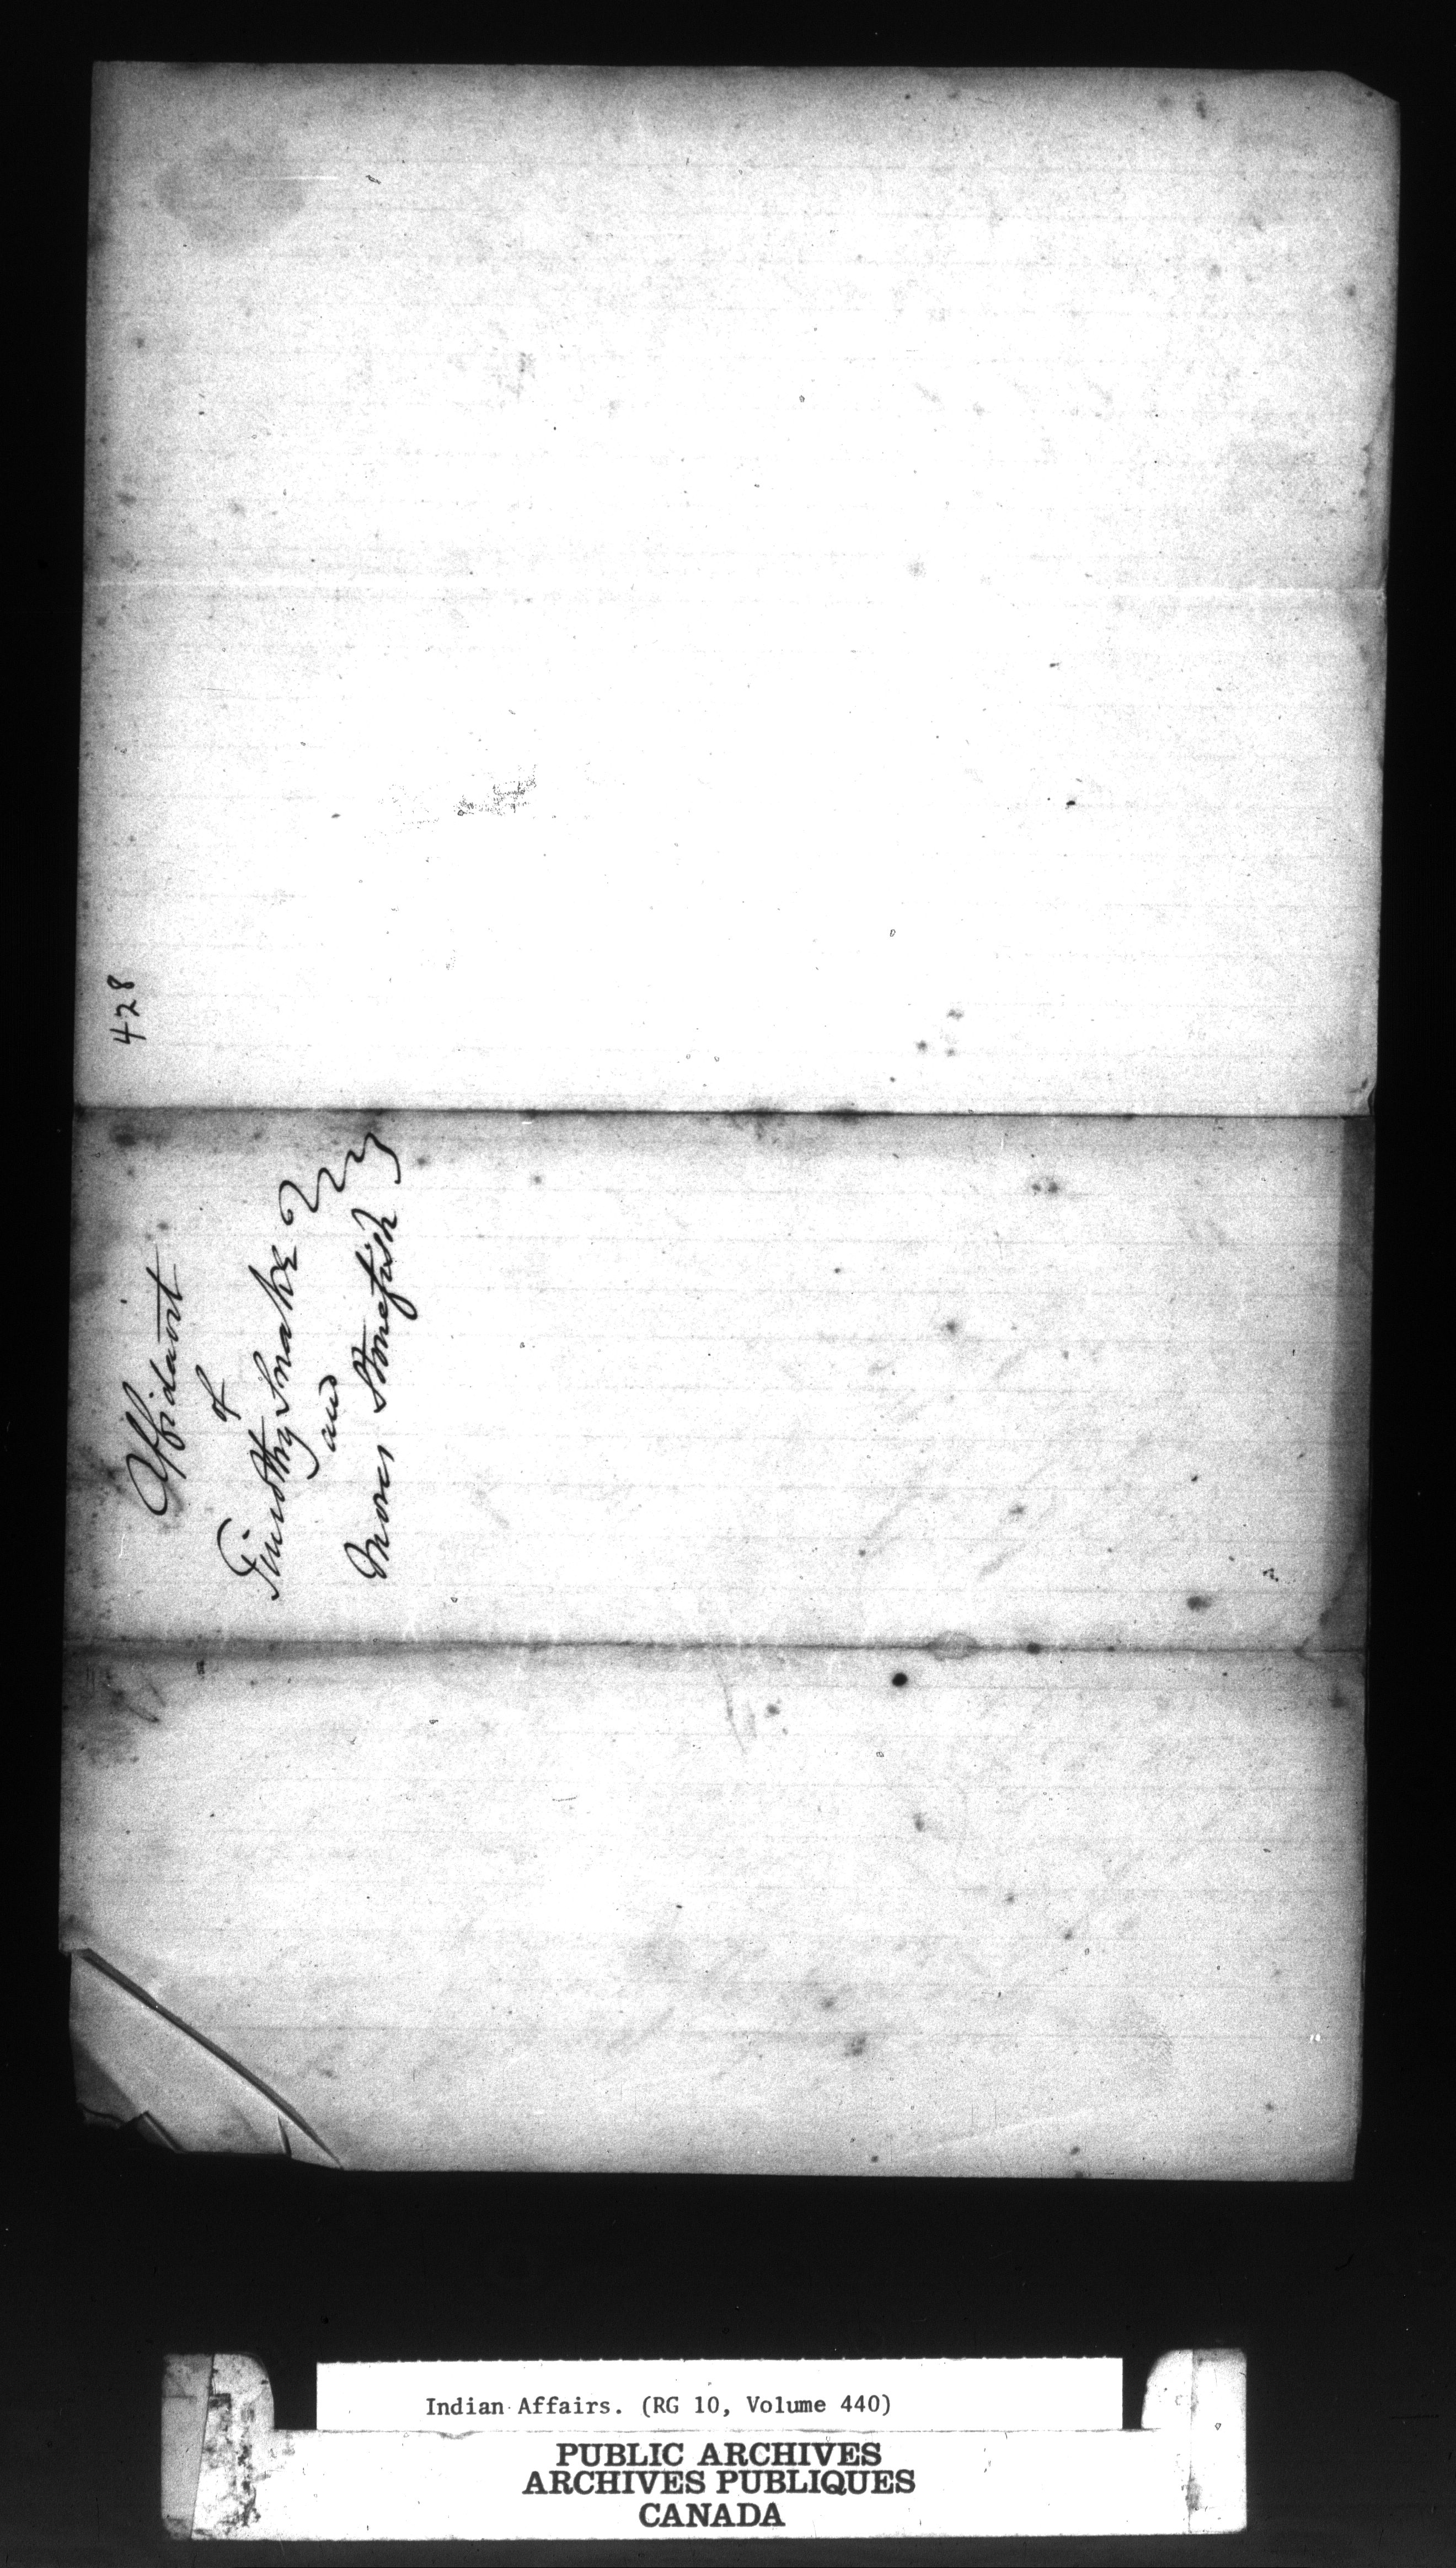 428
Affidavit
of
Timothy Snake
and
Moses Stonefish
Indian Affairs. (RG 10, Volume 440)
PUBLIC ARCHIVES
ARCHIVES PUBLIQUES
CANADA